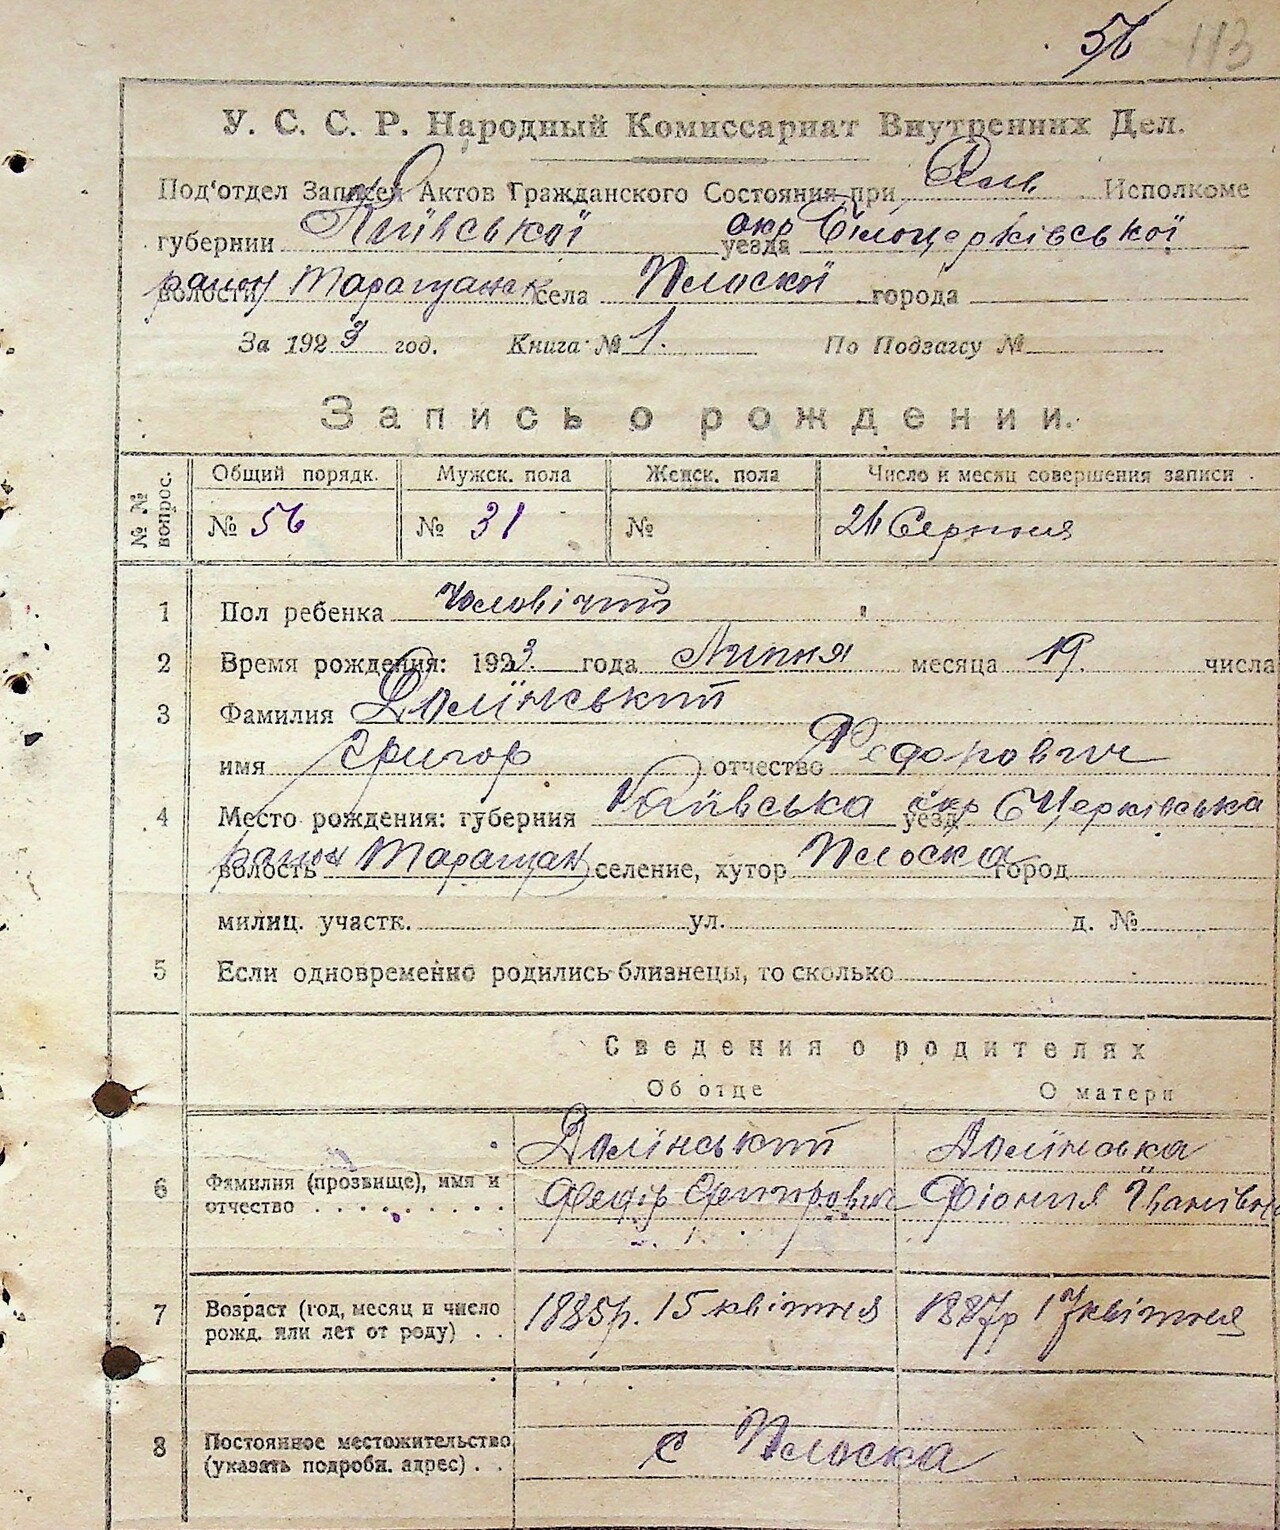 56 113
У. С. С. Р. Народный Комиссариат Внутренних Дел.
Под'отдел Записей Актов Гражданского Состояния при Сель Исполкоме
губернии Київської окр уезда Білоцерківської
район волости Таращанск села Плоскої города
За 1923 год. Книга № 1. По Подзагсу №
Запись о рождении.
№ № вопрос. Общий порядк. Мужск. пола Женск. пола Число и месяц совершения записи
№ 56 № 31 № Серпня
1 Пол ребенка Чоловічий
2 Время рождения: 1923 года Липня месяца 19 числа
3 Фамилия Долїнський
имя Григор отчество Федорович
4 Место рождения: губерния Київська окр уезд БЦерківська
район волость Таращан селение, хутор Плоска город
милиц. участк. ул. д. №
5 Если одновременно родились близнецы, то сколько
Сведения о родителях
Об отце О матери
Долїнський Долїнська
6 Фамилия (прозвище), имя и отчество . . . . . . . . . Федір Фіония Їванівна
7 Возраст (год, месяц и число рожд. или лет от роду) . . 1885р. 15 квітня 1887р 17 квітня
8 Постоянное местожительство (указать подробн. адрес) . . с Плоска